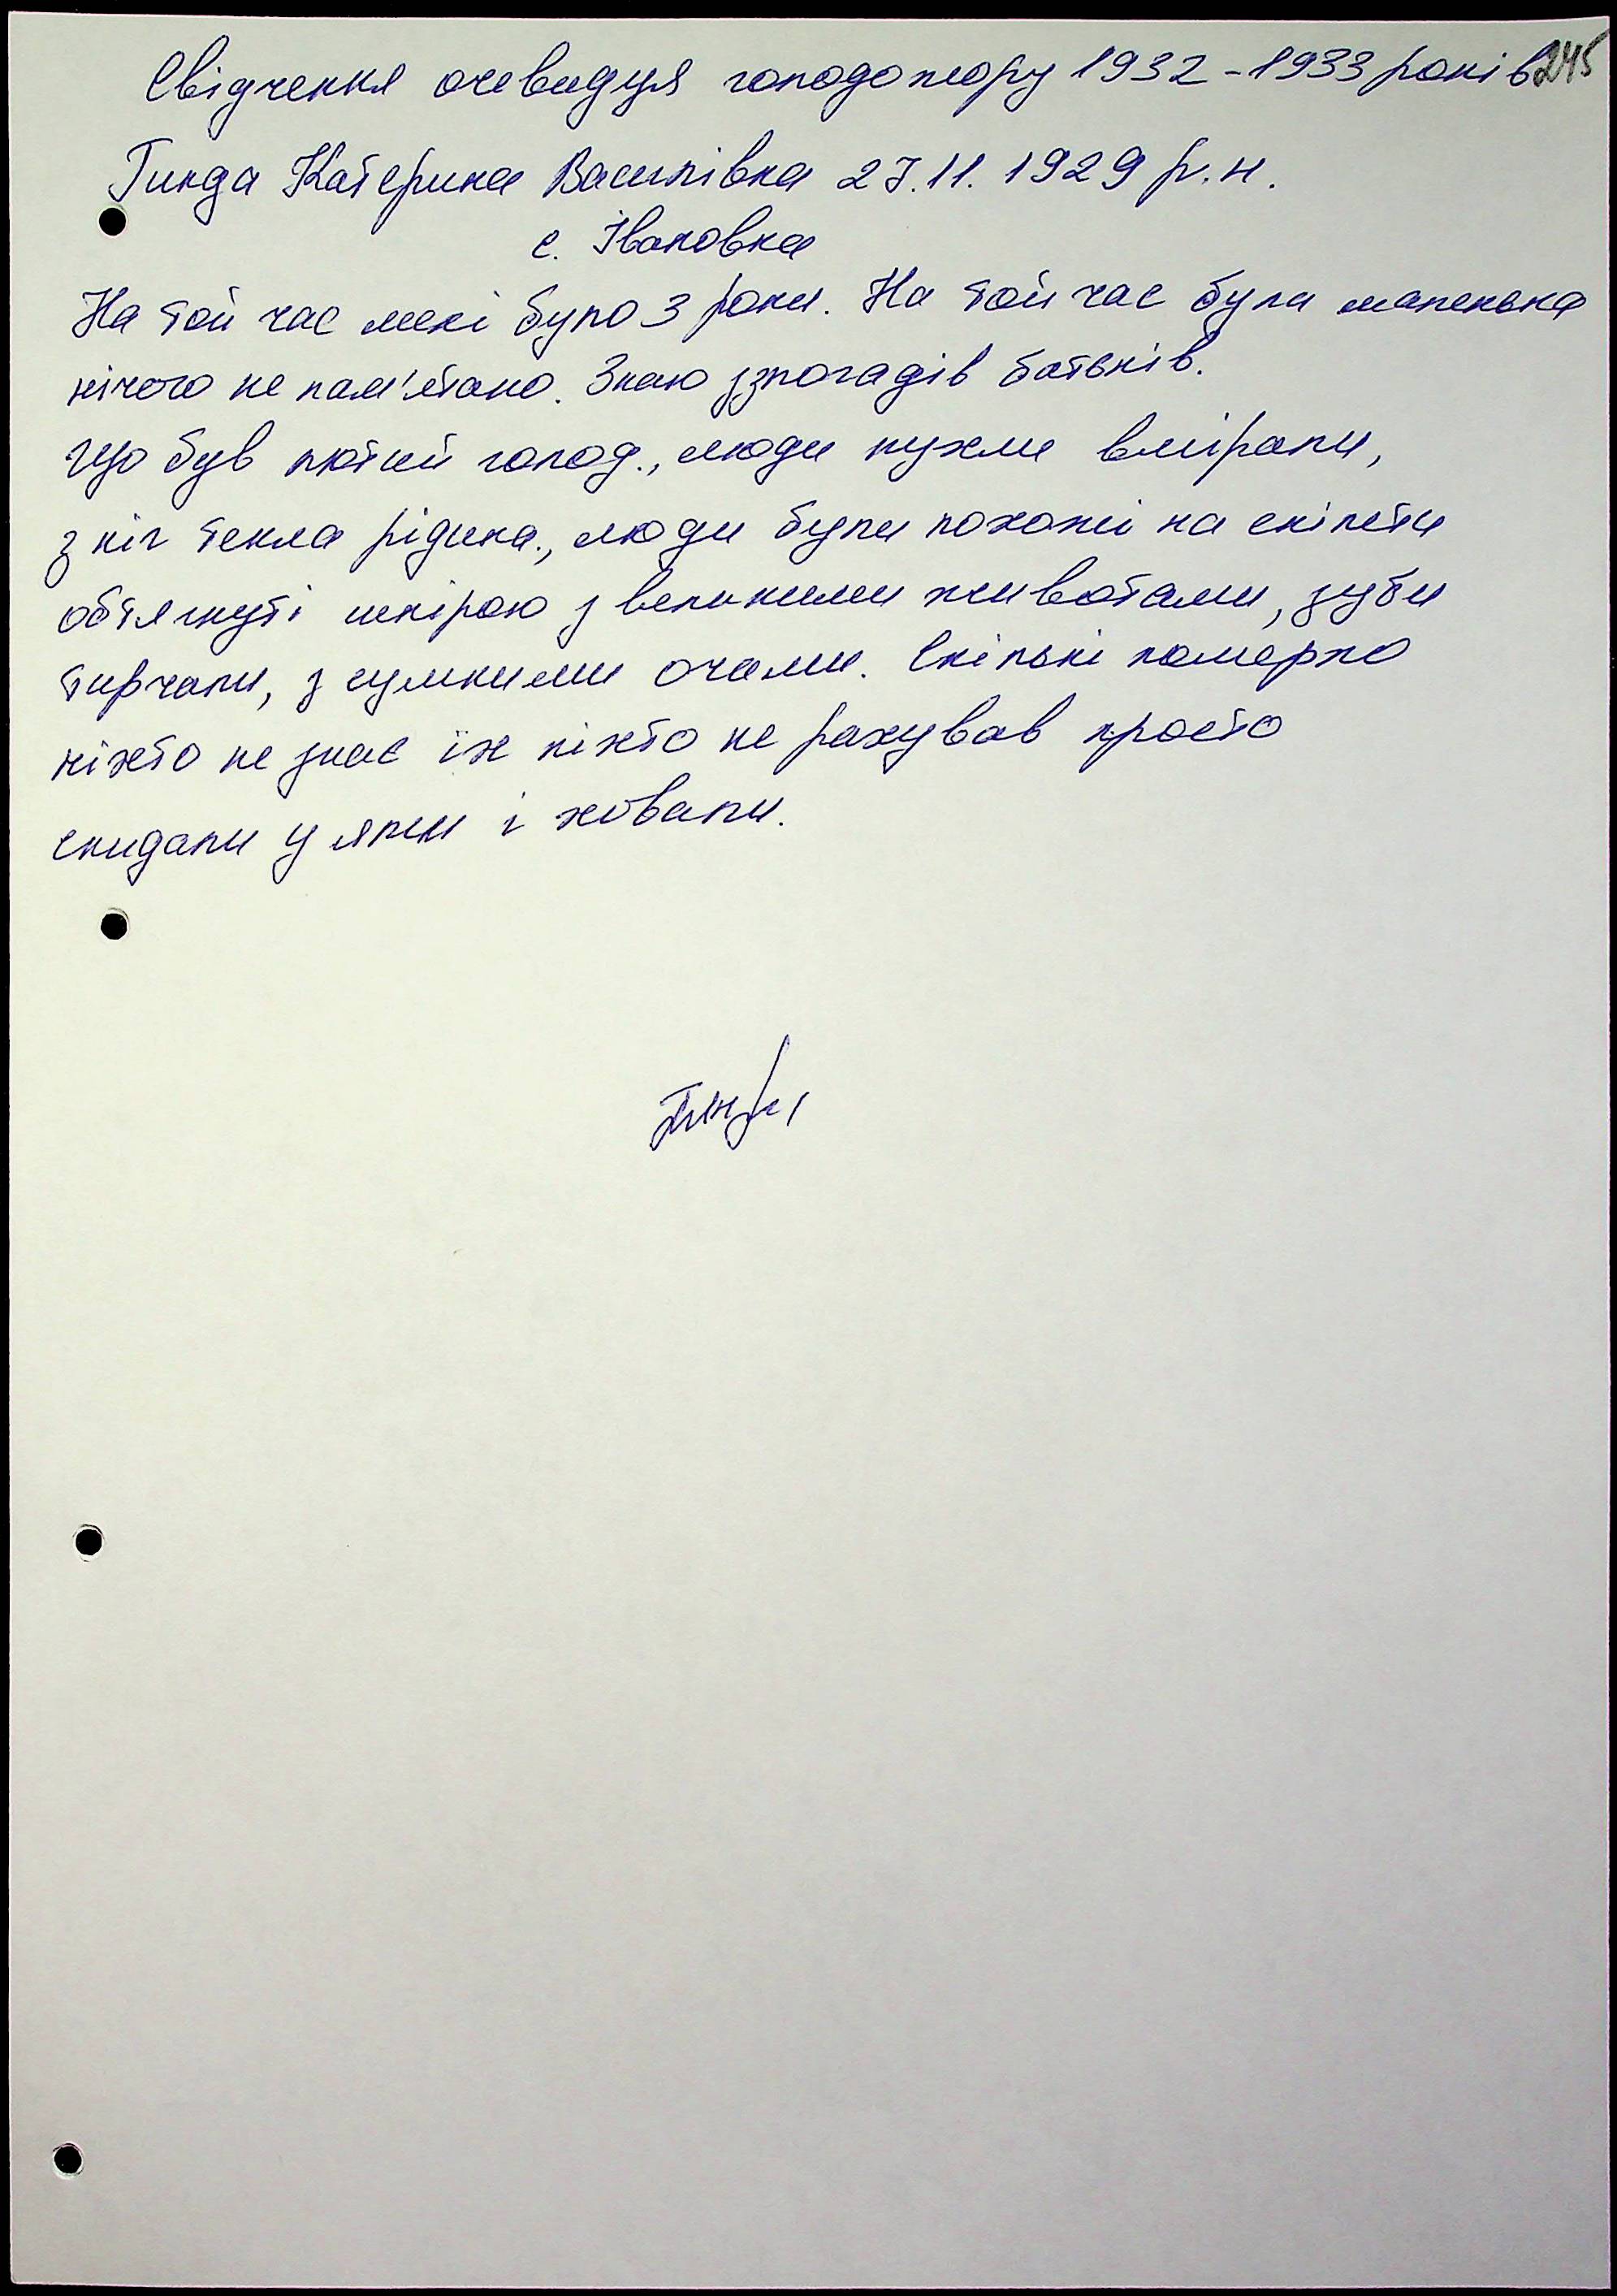 Свідчення очевидця голодомору 1932-1933 років 245
Гинда Катерина Василівна 27.11.1929 р.н.
с. Івановка
На той час мені було 3 роки. На той час була маленька
нічого не пам'ятаю. Знаю зспогадів батьків.
Що був лютий голод., люди пухли вмірали,
з ніг текла рідина., люди були похожі на скілети
обтягнуті шкірою з великими животами, зуби
тирчали, з сумними очами. Скількі померло
ніхто не знає їх ніхто не рахував просто
скидали у ями і ховали.